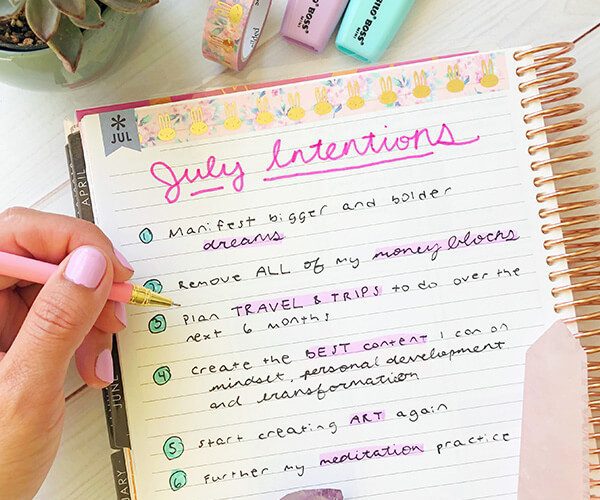 BOSS
BOSS
MINI
* JUL
July Intentions
APRIL
① Manifest bigger and bolder
dreams
② Remove ALL of my money blocks
③ Plan TRAVEL & TRIPS to do over the
next 6 months
④ create the BEST content I can on
mindset, personal development
and transformation
JUNE
⑤ start creating ART again
⑥ Further my meditation practice